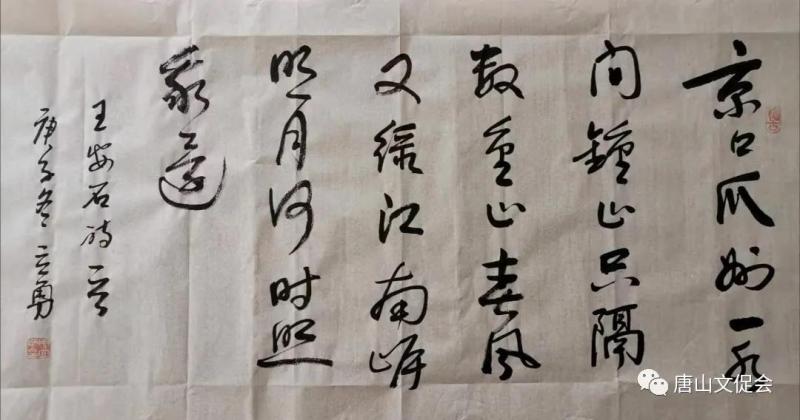 京口瓜洲一水
间鐘山只隔
数重山春风
又绿江南岸
明月何时照
我还
王安石诗一首
庚子冬立勇
唐山文促会